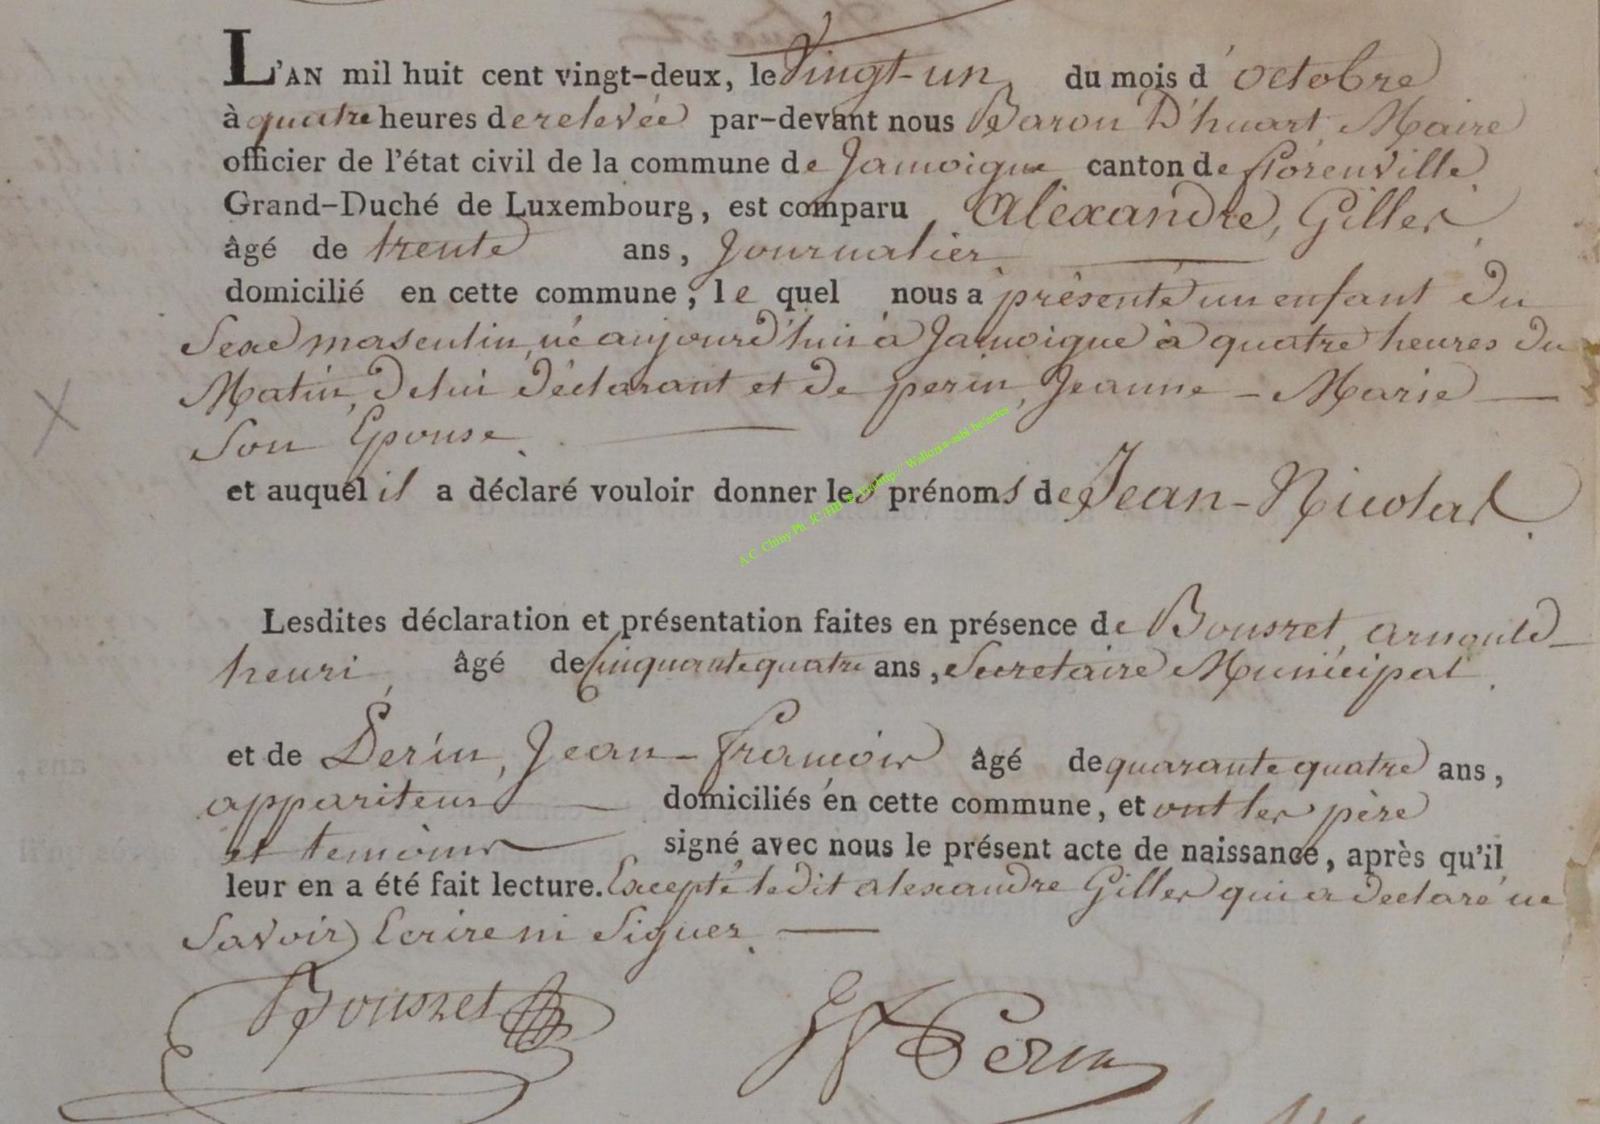 L'AN mil huit cent vingt-deux, le Vingt-un du mois d'octobre
à quatre heures de relevée par-devant nous Baron D'huart, Maire
officier de l'état civil de la commune de Jamoigne canton de florenville
Grand-Duché de Luxembourg, est comparu Alexandre, Gilles,
âgé de trente ans, Journalier
domicilié en cette commune, le quel nous a présenté un enfant du
Sexe masculin, né aujourd'hui à Jamoigne à quatre heures du
Matin, de lui déclarant et de perin, Jeanne - Marie
Son Epouse
et auquel il a déclaré vouloir donner les prénoms de Jean-Nicolas.
A.C. Chiny Ph.
Lesdites déclaration et présentation faites en présence de Bousret, arnould-
henri, âgé de Cinquante quatre ans, Secretaire Municipal.
et de Perin, Jean-francois âgé de quarante quatre ans,
appariteur domiciliés en cette commune, et ont les père
et temoins signé avec nous le présent acte de naissance, après qu'il
leur en a été fait lecture. Excepté ledit alexandre Gilles qui a declaré ne
Savoir Ecrire ni Signer.
Bousret JF Perin